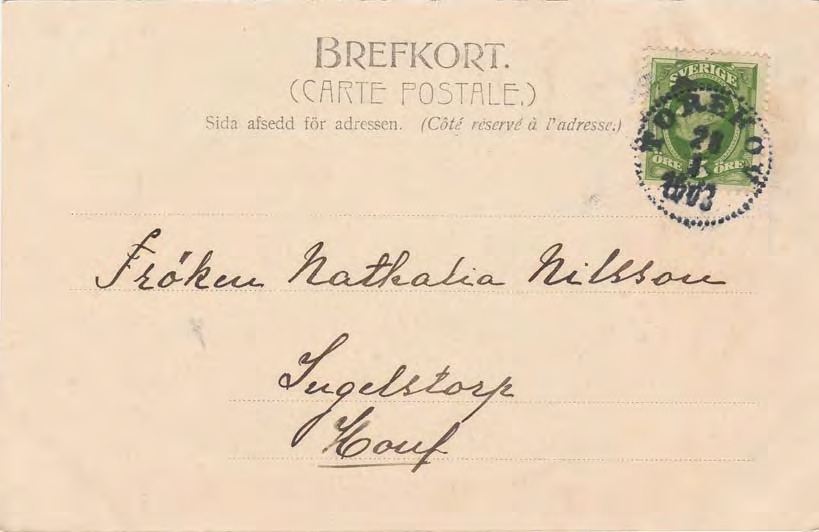 BREFKORT.
(CARTE POSTALE.)
Sida afsedd för adressen. (Côté réservé à l'adresse.)
SVERIGE
ÖRE 5 ÖRE
1903
Fröken Nathalia Nilsson
Ingelstorp
Houf